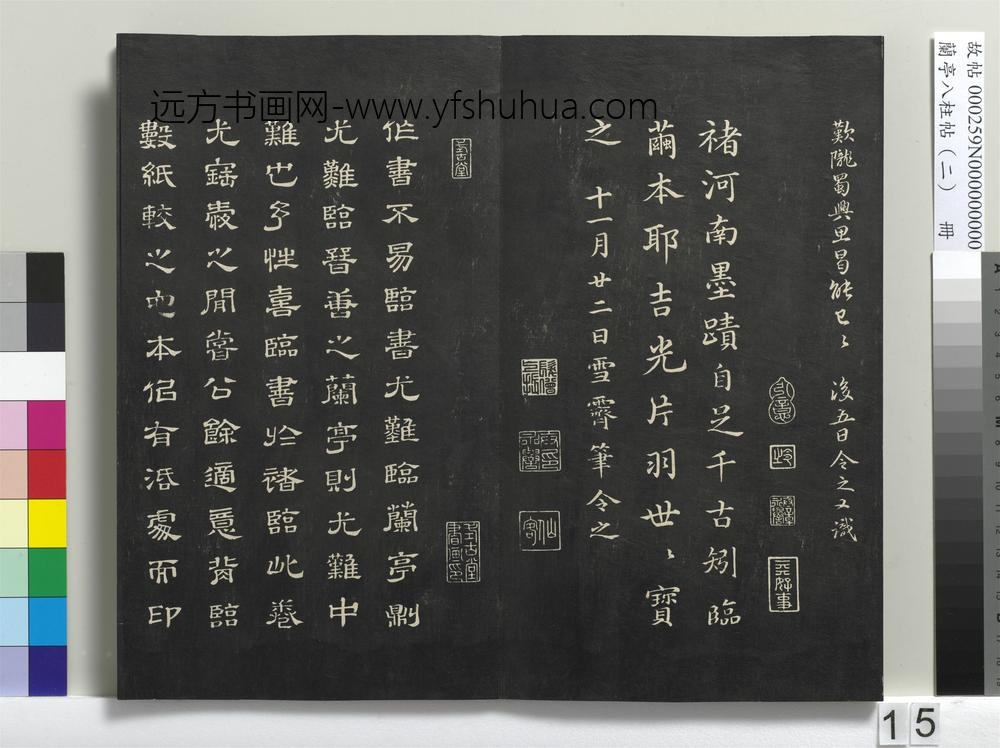 远方书画网-www.yfshuhua.com
歎隴蜀興思曷能已〻 後五日令之又識
褚河南墨蹟自足千古矧臨
蘭本耶吉光片羽世〻寶
之 十一月廿二日雪霽筆令之
作書不易臨書尤難臨蘭亭則
尤難臨晉善之蘭亭則尤難中
難也予性喜臨書於諸臨此卷
尤寤寐之閒嘗公餘適意背臨
數紙較之此本俱有添處而印
故帖 000259N000000000
蘭亭八柱帖（二） 冊
15